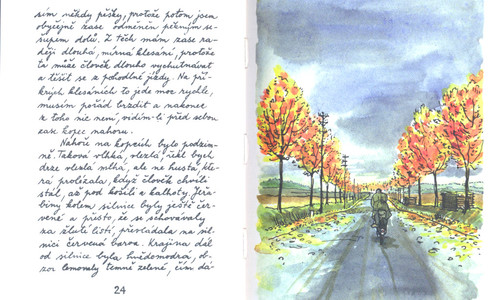 sím někdy pěšky, protože potom jsem
obyčejně zase odměněn pěkným se-
stupem dolů. Z těch mám zase ra-
ději dlouhá, mírná klesání, protože
ta může člověk dlouho vychutnávat
a těšit se z pohodlné jízdy. Na pří-
krých klesáních to jede moc rychle,
musím pořád brzdit a nakonec
z toho nic není, vidím-li před sebou
zase kopec nahoru.
Nahoře na kopcích bylo podzim-
ně. Taková vlhká, vlezlá, řekl bych
drze vlezlá mlha, ale ne hustá, kte-
rá prolézala, když člověk chvíli
stál, až pod košili a kalhoty. Jeřa-
biny kolem silnice byly ještě čer-
vené a přesto, že se schovávaly
za žluté listí, převládala na sil-
nici červená barva. Krajina dál
od silnice byla hnědomodrá, ob-
zor lemovaly temně zelené, čím dá-
24